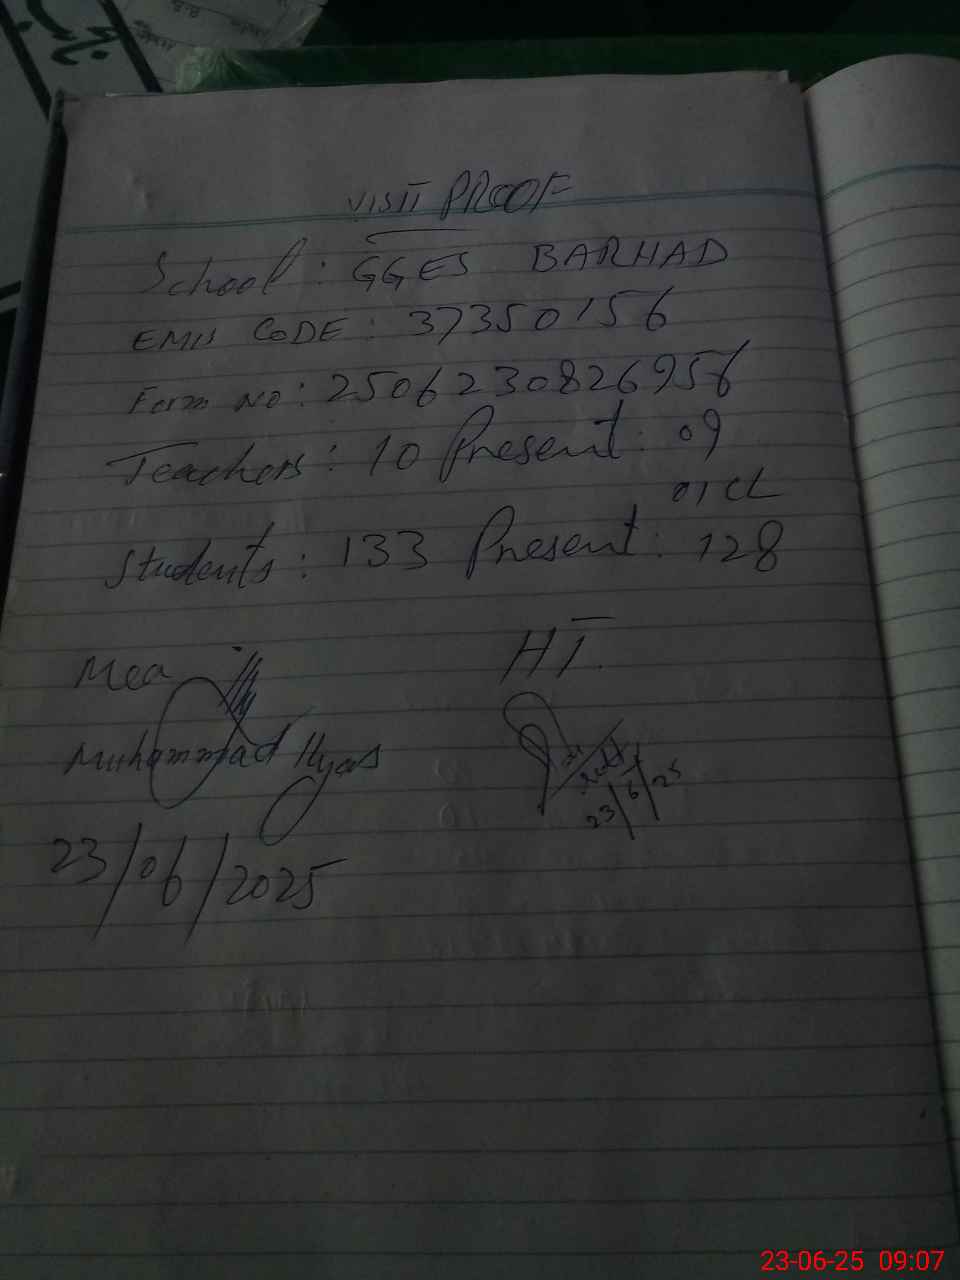 VISIT PROOF
School: GGES BARHAD
EMIS CODE: 37350156
Form NO: 2506230826956
Teachers: 10 Present: 09
01 CL
Students: 133 Present: 128
Mea
HT.
Muhammad Ilyas
23/6/25
23/06/2025
23-06-25 09:07